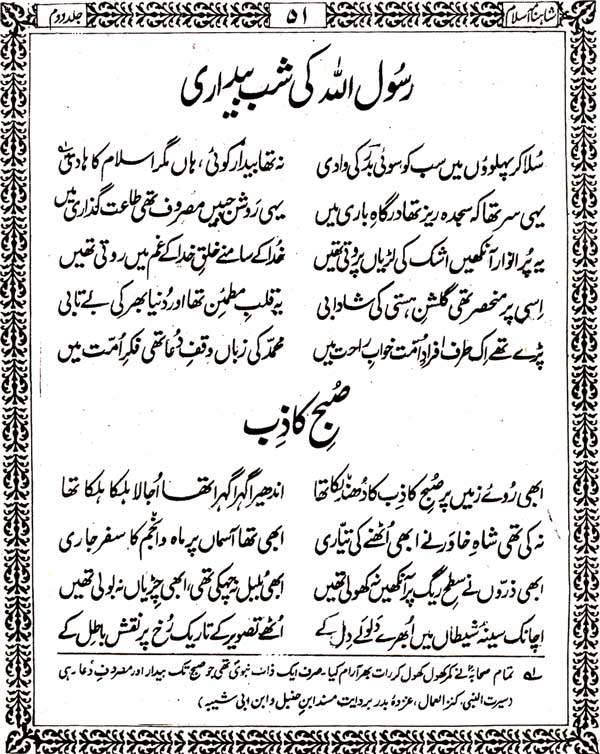 شاہنامہ اسلام ۵۱ جلد دوم
رسُول اللہ کی شب بیداری
سُلا کر پہلوؤں میں سب کو سوئی بدر کی وادی نہ تھا بیدار کوئی، ہاں مگر اسلام کا ہادی ؎۱
یہی سر تھا کہ سجدہ ریز تھا درگاہِ باری میں یہی روشن جبیں مصروف تھی طاعت گذاری میں
یہ پُر انوار آنکھیں اشک کی لڑیاں پروتی تھیں خُدا کے سامنے خلقِ خدا کے غم میں روتی تھیں
اِسی پر منحصر تھی گلشنِ ہستی کی شادابی یہ قلبِ مطمئن تھا اور دُنیا بھر کی بے تابی
پڑے تھے اِک طرف افرادِ اُمّت خوابِ راحت میں محمدؐ کی زباں وقفِ دُعا تھی فکرِ اُمّت میں
صُبحِ کاذِب
ابھی رُوئے زمیں پر صُبحِ کاذب کا دُھندلکا تھا اندھیرا گہرا گہرا تھا اُجالا ہلکا ہلکا تھا
نہ کی تھی شاہِ خاور نے ابھی اُٹھنے کی تیّاری ابھی تھا آسماں پر ماہ و انجم کا سفر جاری
ابھی ذرّوں نے سطحِ ریگ پر آنکھیں نہ کھولی تھیں ابھی بُلبل نہ چہکی تھی، ابھی چڑیاں نہ بولی تھیں
اچانک سینۂ شیطاں میں اُبھرے ولولے دِل کے اُٹھے تصویر کے تاریک رُخ پر نقش باطِل کے
؎۱ تمام صحابہؓ نے کمر کھول کھول کر رات بھر آرام کیا۔ صرف ایک ذات نبویؐ تھی جو صبح تک بیدار اور مصروفِ دُعا رہی
(سیرت النبی۔ کنز العمال، غزوۂ بدر بروایت مسند ابنِ حنبل و ابن ابی شیبہ)